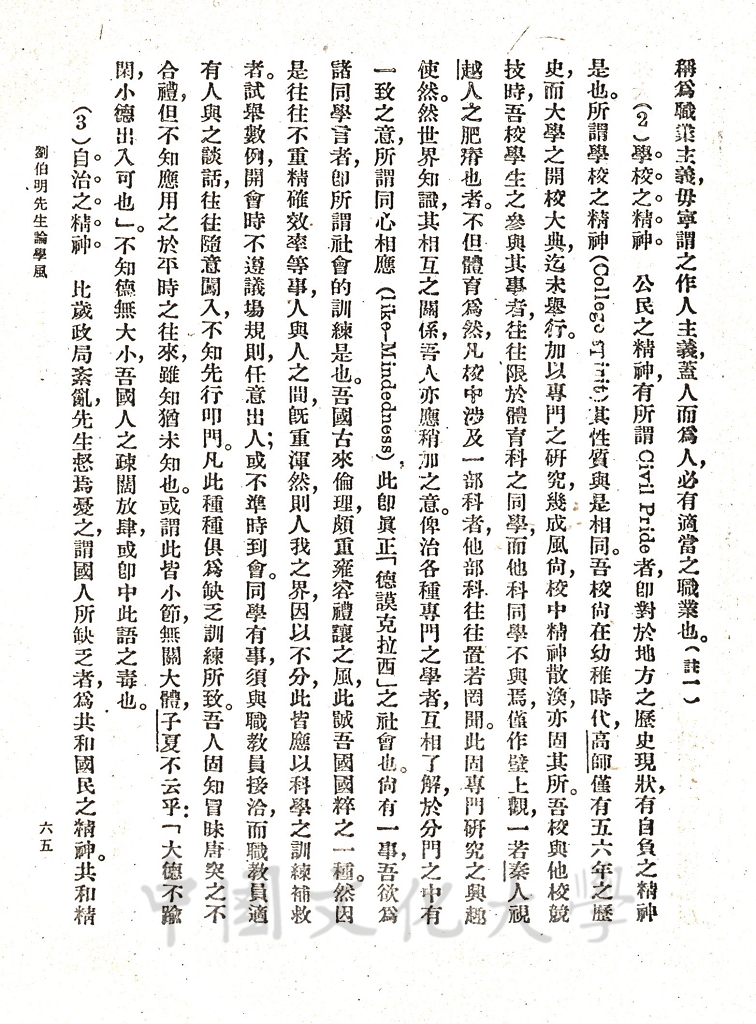 稱爲職業主義，毋寧謂之作人主義，蓋人而爲人，必有適當之職業也。（註一）
（2）學校之精神　公民之精神，有所謂Civil Pride者，卽對於地方之歷史現狀，有自負之精神
是也。所謂學校之精神（College Spirit）其性質與是相同。吾校尙在幼稚時代，高師僅有五六年之歷
史，而大學之開校大典，迄未舉行。加以專門之硏究，幾成風尙，校中精神散渙，亦固其所。吾校與他校競
技時，吾校學生之參與其事者，往往限於體育科之同學，而他科同學不與焉，僅作壁上觀，一若秦人視
越人之肥瘠也者。不但體育爲然，凡校中涉及一部科者，他部科往往置若罔聞。此固專門硏究之興趣
使然。然世界知識，其相互之關係，吾人亦應稍加之意。俾治各種專門之學者，互相了解，於分門之中有
一致之意，所謂同心相應（like-Mindedness）此卽眞正「德謨克拉西」之社會也。尙有一事，吾欲爲
諸同學言者，卽所謂社會的訓練是也。吾國古來倫理，頗重雍容禮讓之風，此誠吾國國粹之一種。然因
是往往不重精確效率等事，人與人之間，旣重渾然，則人我之界，因以不分，此皆應以科學之訓練補救
者。試舉數例，開會時不遵議場規則，任意出人；或不準時到會。同學有事，須與職教員接洽，而職教員適
有人與之談話，往往隨意闖入，不知先行叩門。凡此種種，俱爲缺乏訓練所致。吾人固知冒昧唐突之不
合禮，但不知應用之於平時之往來，雖知猶未知也。或謂此皆小節，無關大體，子夏不云乎：「大德不踰
閑，小德出入可也」。不知德無大小，吾國人之疎闊放肆，或卽中此語之毒也。
（3）自治之精神　比歲政局紊亂，先生怒焉憂之，謂國人所缺乏者，爲共和國民之精神。共和精
劉伯明先生論學風
六五
中國文化大學